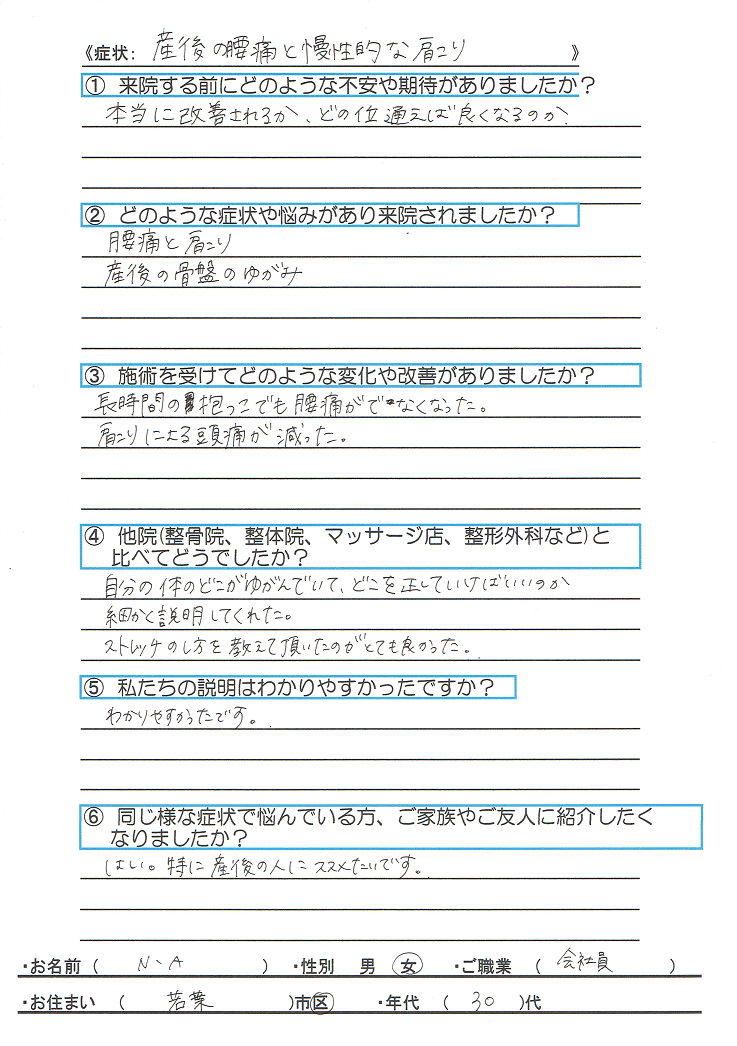 《症状： 産後の腰痛と慢性的な肩こり 》
① 来院する前にどのような不安や期待がありましたか？
本当に改善されるか、どの位通えば良くなるのか
② どのような症状や悩みがあり来院されましたか？
腰痛と肩こり
産後の骨盤のゆがみ
③ 施術を受けてどのような変化や改善がありましたか？
長時間の抱っこでも腰痛がでなくなった。
肩こりによる頭痛が減った。
④ 他院(整骨院、整体院、マッサージ店、整形外科など)と
比べてどうでしたか？
自分の体のどこがゆがんでいて、どこを正していけばいいのか
細かく説明してくれた。
ストレッチのし方を教えて頂いたのがとても良かった。
⑤ 私たちの説明はわかりやすかったですか？
わかりやすかったです。
⑥ 同じ様な症状で悩んでいる方、ご家族やご友人に紹介したく
なりましたか？
はい。特に産後の人にススメたいです。
・お名前 ( N・A ) ・性別 男 女 ・ご職業 ( 会社員 )
・お住まい ( 若葉 )市区 ・年代 ( 30 )代